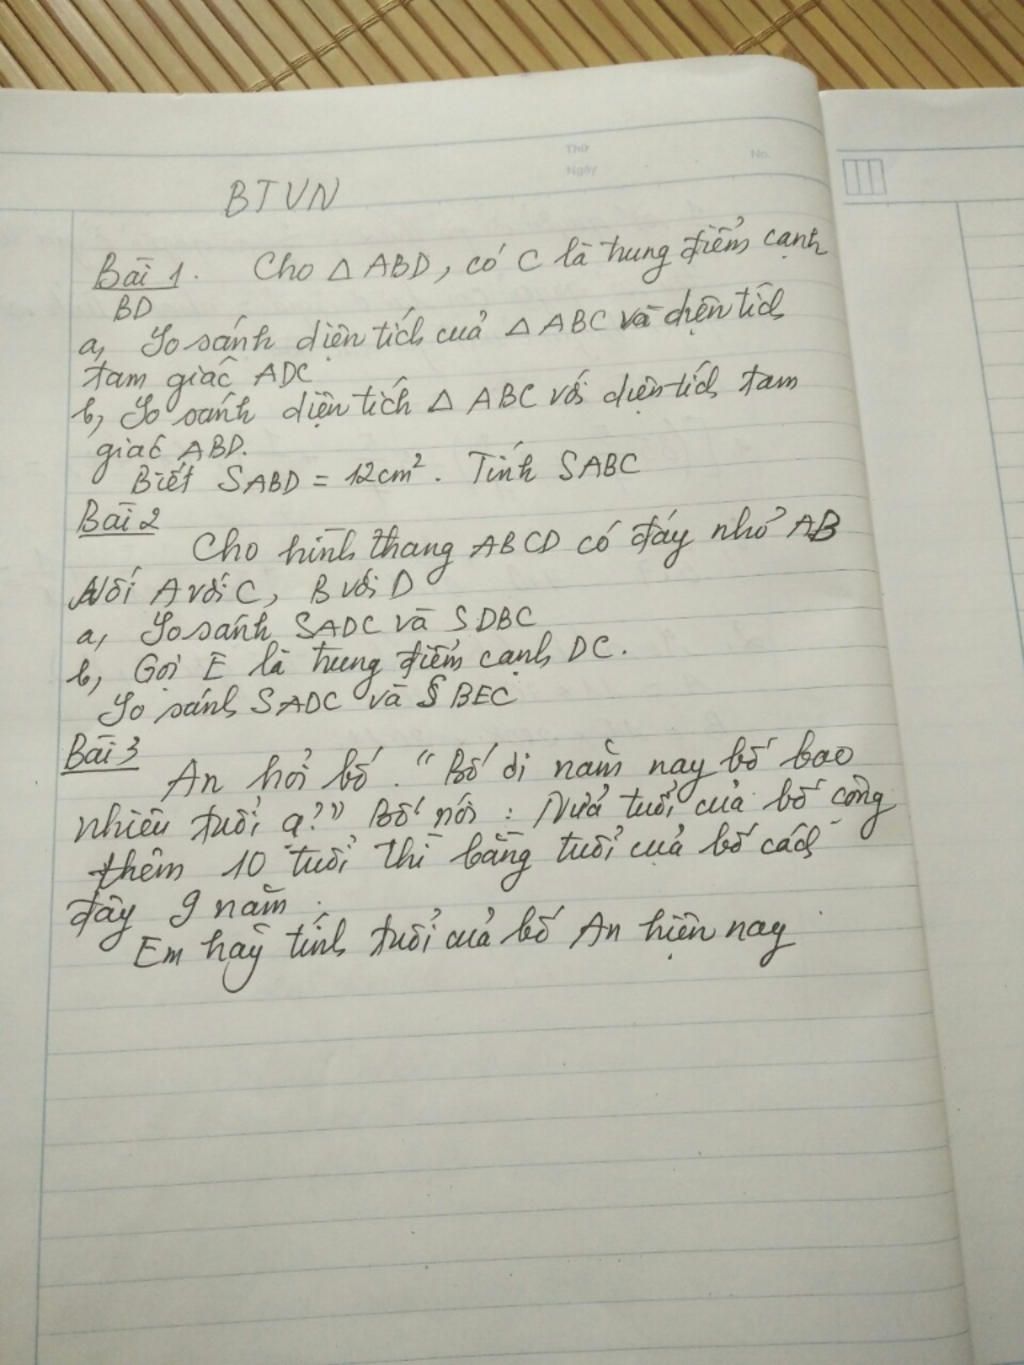 Thứ
Ngày
No.
BTVN
Bài 1. Cho △ ABD, có C là trung điểm cạnh
BD
a, So sánh diện tích của △ ABC và diện tích
tam giác ADC
b, So sánh diện tích △ ABC với diện tích tam
giác ABD.
Biết SABD = 12cm². Tính SABC
Bài 2
Cho hình thang ABCD có đáy nhỏ AB
Nối A với C, B với D
a, So sánh SADC và SDBC
b, Gọi E là trung điểm cạnh DC.
So sánh SADC và SBEC
Bài 3
An hỏi bố. "Bố ơi năm nay bố bao
nhiêu tuổi ạ?" Bố nói : Nửa tuổi của bố cộng
thêm 10 tuổi thì bằng tuổi của bố cách
đây 9 năm.
Em hãy tính tuổi của bố An hiện nay